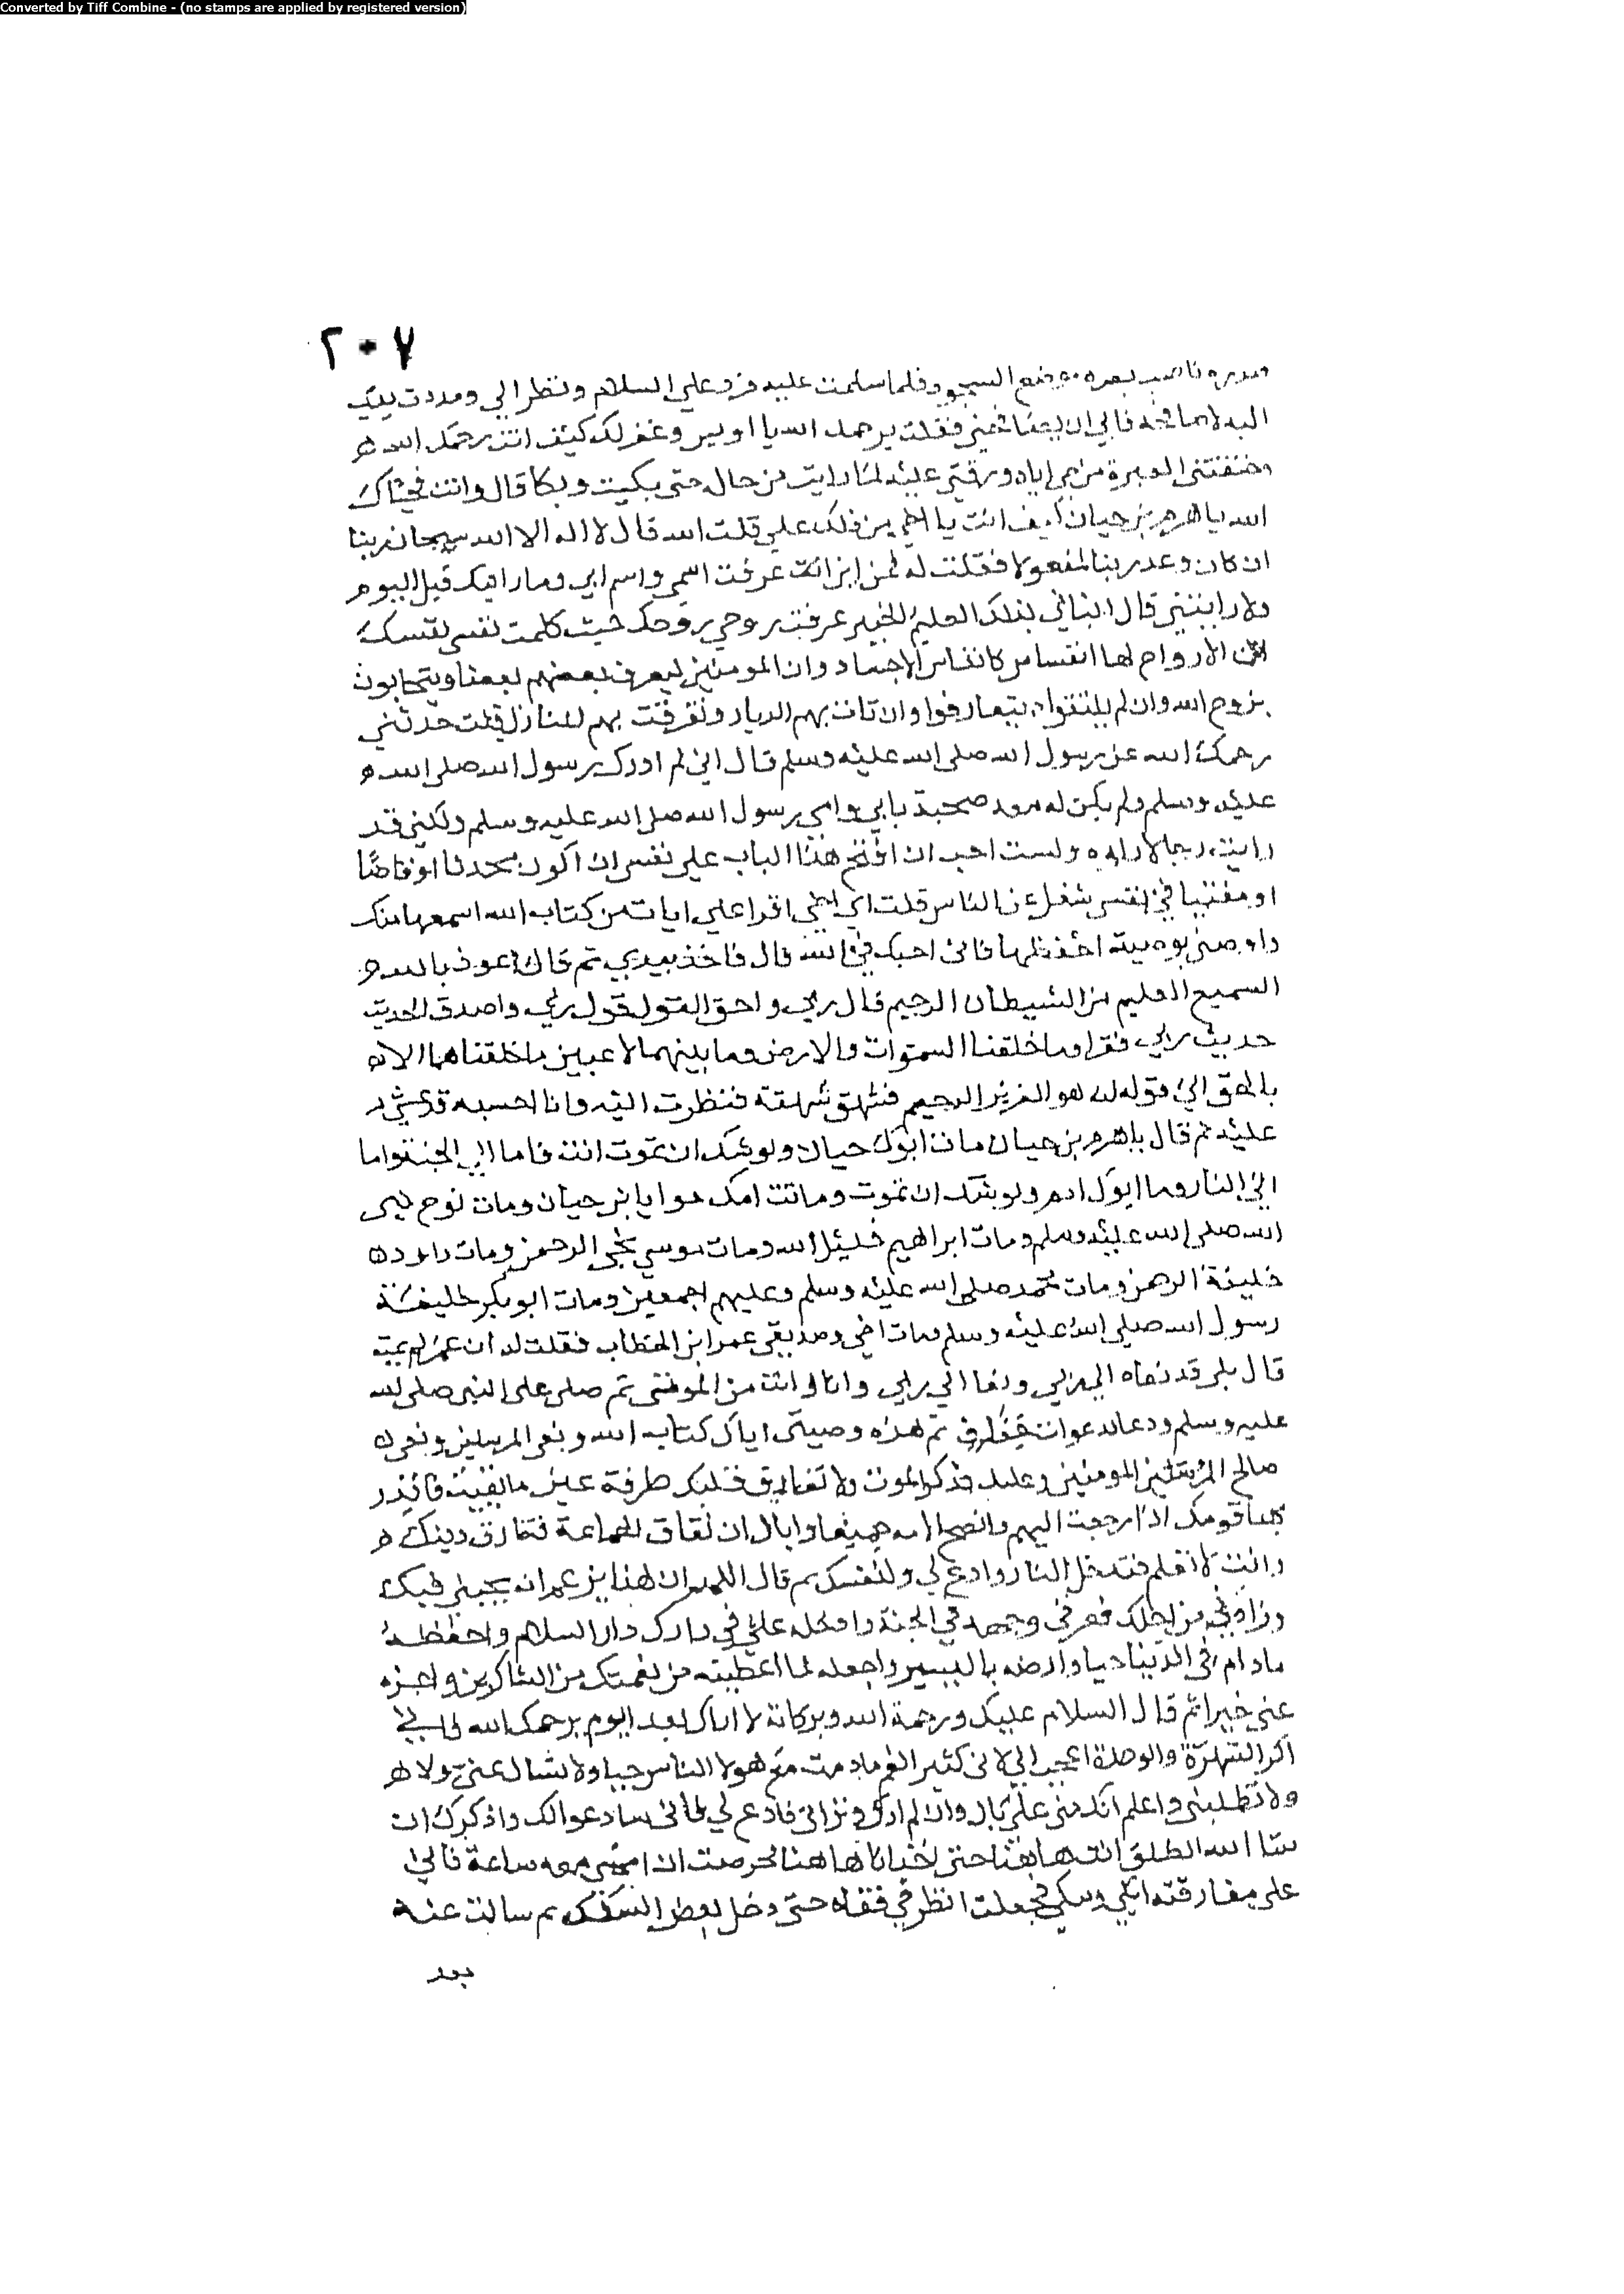 Converted by Tiff Combine - (no stamps are applied by registered version)
٢٠٧
صدره ناصب بصره موضع السجود فلما سلمت عليه فرد علي السلام ونظر الي ومددت يدي
اليه لاصافحه فابي ان يصافحني فقلت يرحمك الله يا اويس وغفر لك كيف انت رحمك الله
وخنقتني العبرة من حبي اياه ورقتي عليه لما رايت من حاله حتى بكيت وبكا قال وانت فحياك
الله يا هرم بن حيان كيف انت يا اخي من دلك علي قلت الله قال لا اله الا الله سبحان ربنا
ان كان وعد ربنا لمفعولا فقلت له فمن اين عرفت اسمي واسم ابي وما رايتك قبل اليوم
ولا رايتني قال انباني بذلك العليم الخبير عرفت روحي روحك حيث كلمت نفسي نفسك
لان الارواح لها انفسا كانفاس الاجساد وان المومنين ليعرف بعضهم بعضا ويتحابون
بروح الله وان لم يلتقوا يتعارفوا وان نات بهم الديار وتفرقت بهم المنازل قلت حدثني
رحمك الله عن رسول الله صلى الله عليه وسلم قال اني لم ادرك رسول الله صلى الله
عليه وسلم ولم يكن له معه صحبة بابي وامي رسول الله صلى الله عليه وسلم ولكني قد
رايت رجالا راوه ولست احب ان افتح هذا الباب على نفسي ان اكون محدثا او قاضيا
او مفتيا في نفسي شغل عن الناس قلت اي اخي اقرا علي ايات من كتاب الله اسمعها منك
واوصني بوصية احفظها فاني احبك في الله قال فاخذ بيدي ثم قال اعوذ بالله
السميع العليم من الشيطان الرجيم قال ربي واحق القول قول ربي واصدق الحديث
حديث ربي فقرا وما خلقنا السموات والارض وما بينهما لاعبين ما خلقناهما الا
بالحق الى قوله انه هو العزيز الرحيم فشهق شهقة فنظرت اليه وانا احسبه قد غشي
عليه ثم قال يا هرم بن حيان مات ابوك حيان ويوشك ان تموت انت فاما الى الجنة واما
الى النار ومات ابوك ادم ويوشك ان تموت وماتت امك حوا يا بن حيان ومات نوح نبي
الله صلى الله عليه وسلم ومات ابراهيم خليل الله ومات موسي نجي الرحمن ومات داود
خليفة الرحمن ومات محمد صلى الله عليه وسلم وعليهم اجمعين ومات ابو بكر خليفة
رسول الله صلى الله عليه وسلم ومات اخي وصديقي عمر ابن الخطاب فقلت له ان عمر لم يمت
قال بلى قد نعاه الي ربي ونعا الي ربي وانا وانت من الموتى ثم صلى على النبي صلى الله
عليه وسلم ودعا بدعوات خفاف ثم هذه وصيتي اياك كتاب الله ونعي المرسلين ونعي
صالح المومنين وعليك بذكر الموت ولا تفارق قلبك طرفة عين ما بقيت فانذر
بها قومك اذا رجعت اليهم وانصح الامة جميعا واياك ان تفارق الجماعة فتفارق دينك
وانت لا تعلم فتدخل النار وادع لي ولنفسك ثم قال اللهم ان هذا يزعم انه يحبني فيك
وزارني من اجلك فعرفني وجهه في الجنة وادخله علي في دارك دار السلام واحفظه
مادام في الدنيا حيا وارضه باليسير واجعله لما اعطيته من نعمتك من الشاكرين واجزه
عني خيرا ثم قال السلام عليك ورحمة الله وبركاته لا اراك بعد اليوم يرحمك الله فاني
اكره الشهرة والوحدة اعجب الي لاني كثير الغم مادمت مع هولا الناس حيا ولا تسال عني
ولا تطلبني واعلم انك مني على بال وان لم ارك وتراني فادع لي فاني سادعوا لك واذكرك ان
شا الله انطلق انت هاهنا حتى اخذ انا هاهنا فحرصت ان امشي معه ساعة فابى
على مفارقته ابكي ويبكي فجعلت انظر في قفاه حتى دخل بعض السكك ثم سالت عنه
بعد